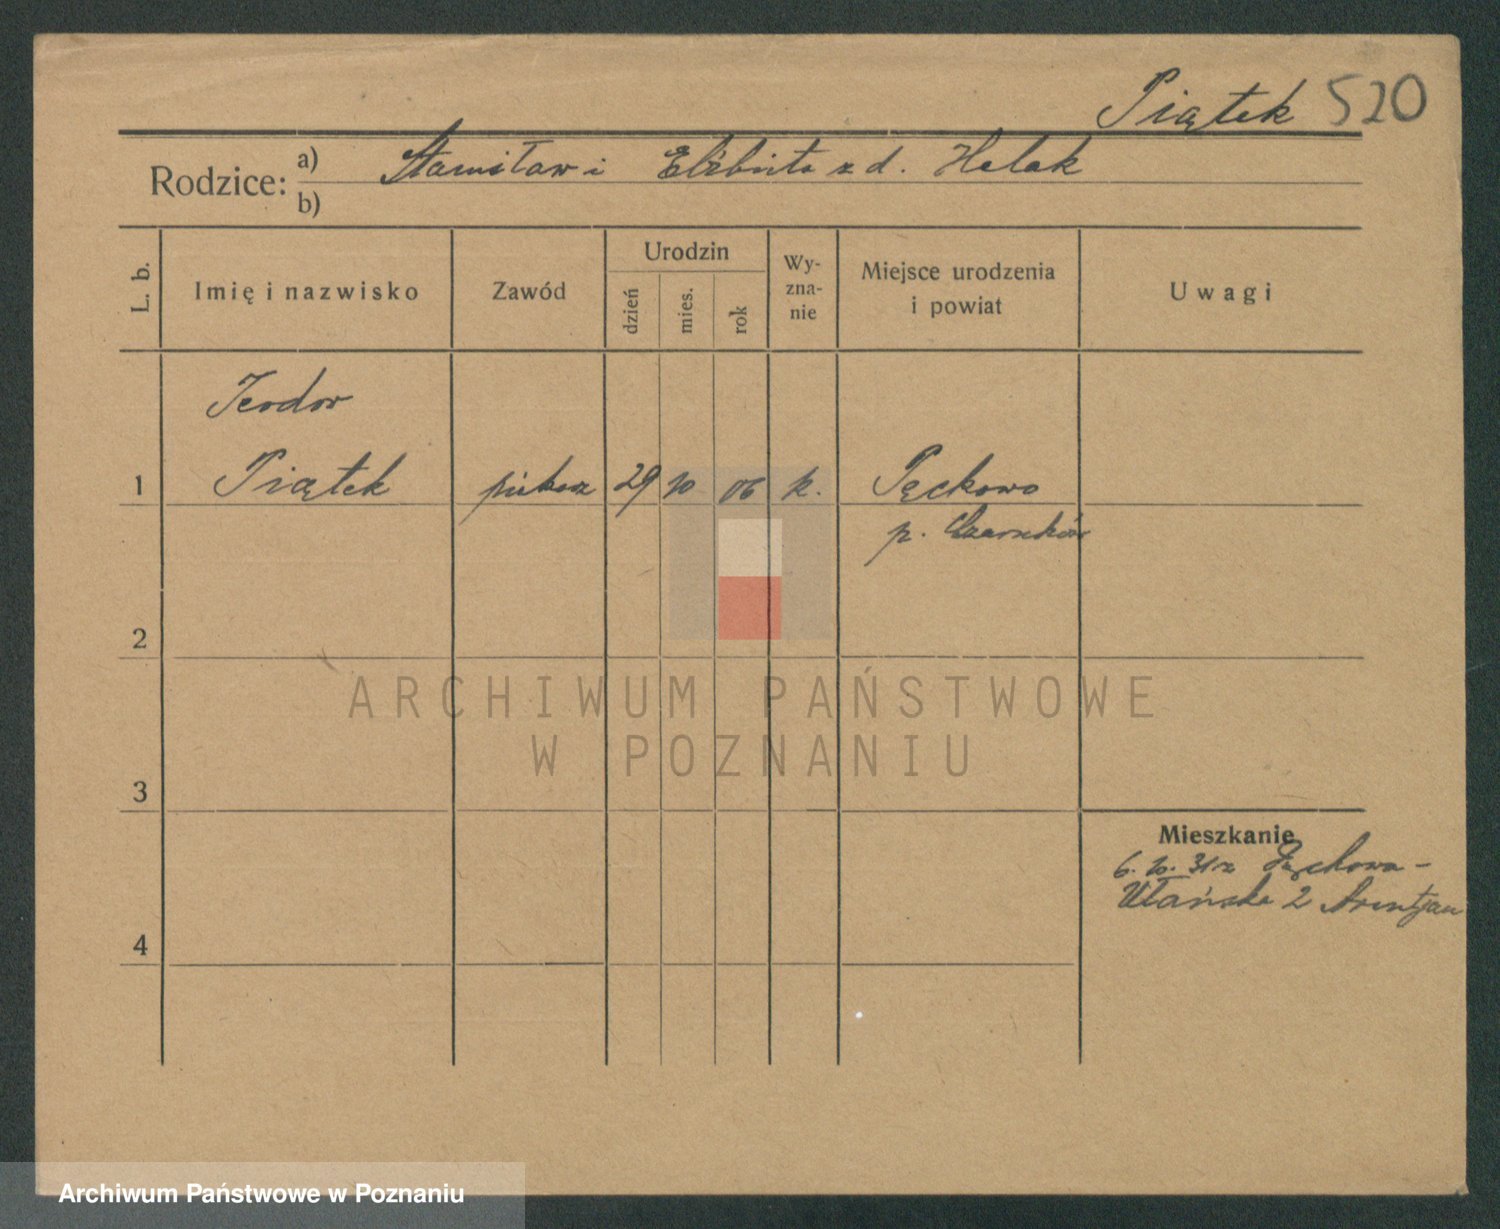 Piątek 520
Rodzice: a) Stanisław i Elżbieta z d. Halak
b)
L. b.
Imię i nazwisko
Zawód
Urodzin
dzień
mies.
rok
Wy-
zna-
nie
Miejsce urodzenia
i powiat
Uwagi
Teodor
1 Piątek piekarz 29 10 06 k. Pęckowo
p. Czarnków
2
3
4
Mieszkanie
6. 10. 31 z Pęckowa -
Ułańska 2
ARCHIWUM PAŃSTWOWE
W POZNANIU
Archiwum Państwowe w Poznaniu